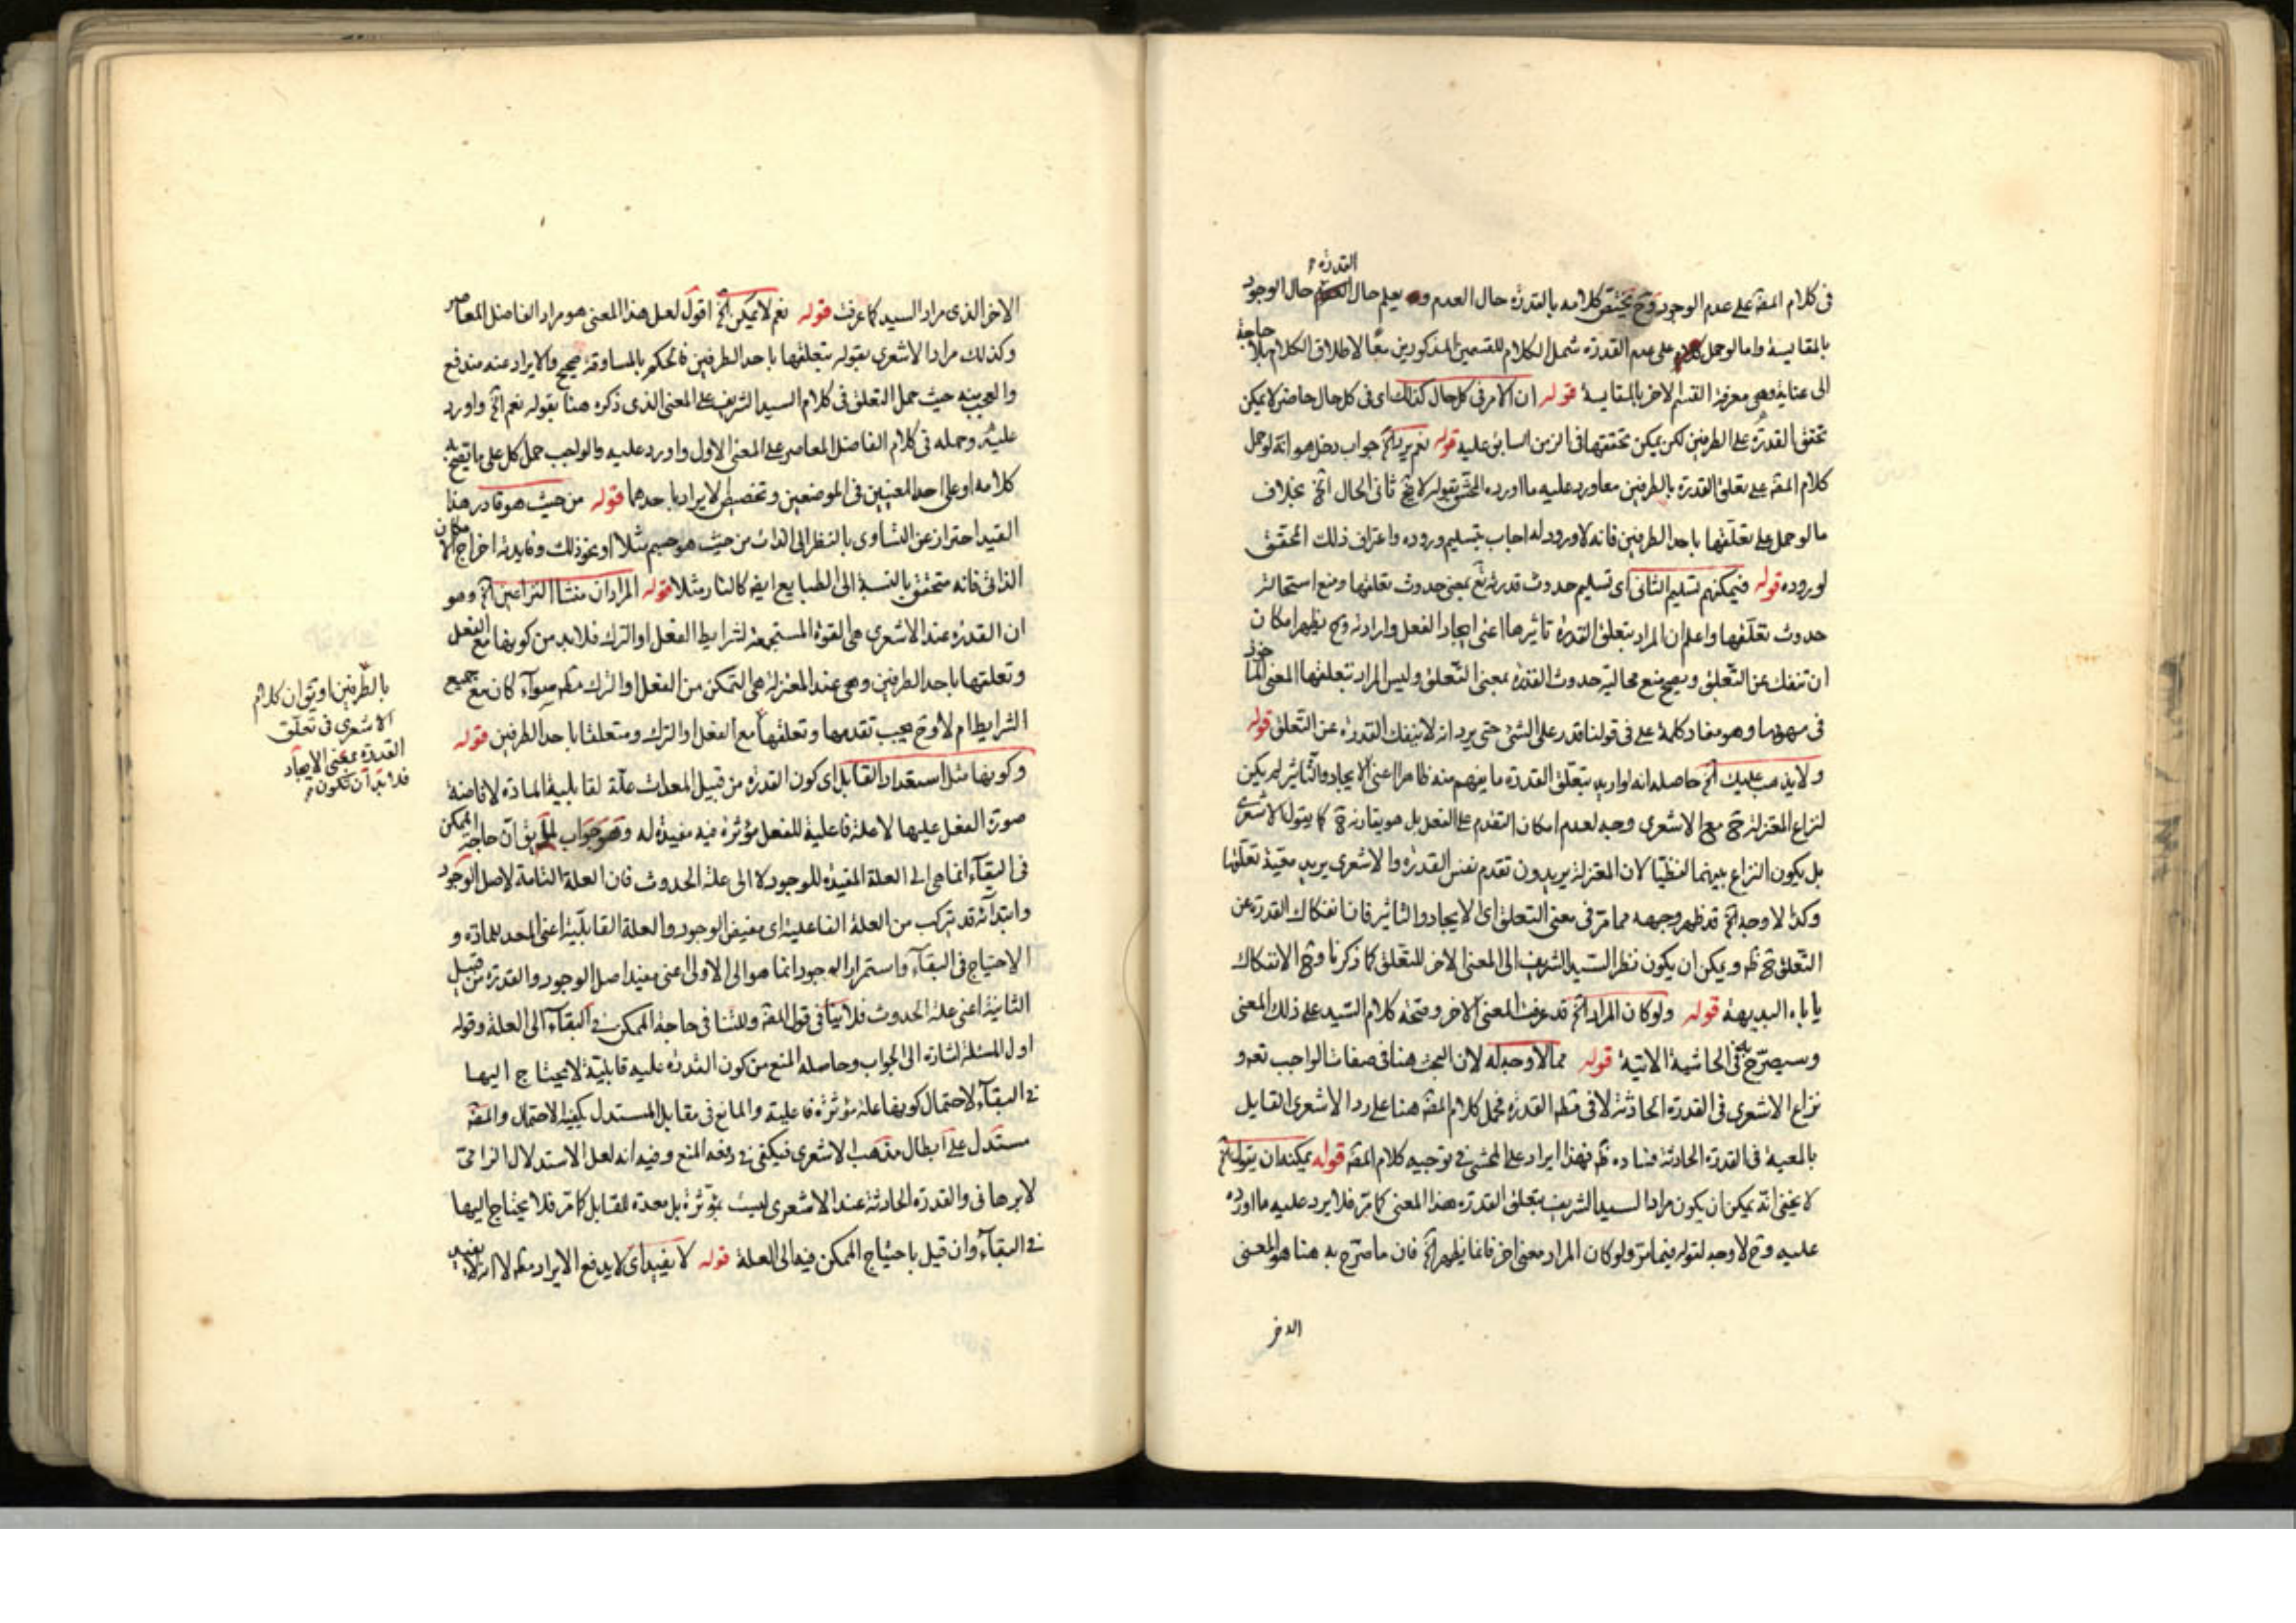 القدرة
فى كلام المصّ على عدم الوجود وح يختص كلامه بالقدرة حال العدم و يعلم حال حال الوجود
بالمقايسة واما لو حمل على عدم القدرة شمل الكلام للقسمين المذكورين معًا لاطلاق الكلام بلا حاجة
الى عناية وهى معرفة القسم الاخر بالمقايسة قوله ان الامر فى كل حال كذلك اى فى كل حال حاضر لا يمكن
تحقق القدرة على الطرفين لكن يمكن تحققها فى الزمن السابق عليه قوله نعم يرد الخ جواب دخل هو انه لو حمل
كلام المصّ على تعلق القدرة بالطرفين معا ورد عليه ما اورده المحشى بقوله لا فى ثانى الحال الخ بخلاف
ما لو حمل على تعلقها باحد الطرفين فانه لا ورود له اجاب بتسليم وروده واعتراف ذلك المحقق
لوروده قوله فيمكنهم تسليم الثانى اى تسليم حدوث قدرته تع بمعنى حدوث تعلقها ومنع استحالة
حدوث تعلقها واعلم ان المراد بتعلق القدرة تاثيرها اعنى ايجاد الفعل وارادته وح يظهر امكان
ان تنفك عن التعلق ويصح منع محالية حدوث القدرة بمعنى التعلق وليس المراد بتعلقها المعنى الماخوذ
فى مفهومها وهو مفاد كلمة على فى قولنا قدر على الشئ حتى يرد انه لا ينفك القدرة عن التعلق قوله
ولا يذهب عليك الخ حاصله انه لو اريد بتعلق القدرة ما يفهم منه ظاهرا اعنى الايجاد والتاثير لم يكن
لنزاع المعتزلة ح مع الاشعرى وجه لعدم امكان التقدم على الفعل بل هو يقارنه ح كما يقوله الاشعرى
بل يكون النزاع بينهما لفظيًا لان المعتزلة يريدون تقدم نفس القدرة والاشعرى يريد معية تعلقها
وكذا لا وجه الخ قد ظهر وجهه مما مرّ فى معنى التعلق اى الايجاد والتاثير فان انفكاك القدرة عن
التعلق ح ظ ويمكن ان يكون نظر السيد الشريف الى المعنى الاخر للتعلق كما ذكرنا وح الانفكاك
يأباه البديهة قوله ولو كان المراد الخ قد عرفت المعنى الاخر وصحة كلام السيد على ذلك المعنى
وسيصرّح به فى الحاشية الاتية قوله مما لا وجه له لان البحث هنا فى صفات الواجب تع و
نزاع الاشعرى فى القدرة الحادثة لا فى مط القدرة فحمل كلام المصّ هنا على رد الاشعرى القايل
بالمعية فى القدرة الحادثة فساده ظ فهذا ايراد على المحشى فى توجيه كلام المصّ قوله يمكنه ان يقول الخ
لا يخفى انه يمكن ان يكون مراد السيد الشريف بتعلق القدرة هذا المعنى كما مرّ فلا يرد عليه ما اورده
عليه وح لا وجه لقوله فيما مرّ ولو كان المراد معنى اخر فانما يظهر الخ فان ما صرّح به هنا هو المعنى
الاخر
الاخر الذى مراد السيد كما عرفت قوله نعم لا يمكن الخ اقول لعل هذا المعنى هو مراد الفاضل المعاصر
وكذلك مراد الاشعرى بقوله بتعلقها باحد الطرفين فالحكم بالمساوقة صحيح والايراد عنه مندفع
والعجب منه حيث حمل التعلق فى كلام السيد الشريف على المعنى الذى ذكره هنا بقوله نعم الخ واورد
عليه وحمله فى كلام الفاضل المعاصر على المعنى الاول واورد عليه والواجب حمل كل على ما يصح به
كلامه او على احد المعنيين فى الموضعين وتخصيص الايراد باحدهما قوله من حيث هو قادر هذا
القيد احتراز عن التساوى بالنظر الى الذات من حيث هو جسم مثلا او نحو ذلك وفايدته اخراج الامكان
الذاتى فانه متحقق بالنسبة الى الطبايع ايضا كالنار مثلا قوله المراد ان منشأ النزاعين الخ وهو
ان القدرة عند الاشعرى هى القوة المستجمعة لشرايط الفعل او الترك فلا بد من كونها مع الفعل
وتعلقها باحد الطرفين وهى عند المعتزلة هى التمكن من الفعل او الترك مط سواء كان مع جميع
الشرايط ام لا وح يجب تقدمها وتعلقها مع الفعل او الترك ومتعلقا باحد الطرفين قوله
وكونها مثل استعداد القابل اى كون القدرة من قبيل المعدات علّة لقابلية المادة لافاضة
صورة الفعل عليها لا علة فاعلية للفعل مؤثرة فيه مفيدة له وهو جواب لما يق ان حاجة الممكن
فى البقاء انما هى الى العلة المفيدة للوجود لا الى علة الحدوث فان العلة التامة لاصل الوجود
وابتدائه قد تركب من العلة الفاعلية اى مفيض الوجود والعلة القابلية اعنى المعد للمادة و
الاحتياج فى البقاء واستمرار الوجود انما هو الى الاولى اعنى مفيد اصل الوجود والقدرة من قبيل
الثانية اعنى علة الحدوث فلا ينافى قول المصّ وللتنافى حاجة الممكن فى البقاء الى العلة وقوله
اول المسئلة اشارة الى الجواب وحاصله المنع من كون القدرة عليه قابلية لا يحتاج اليها
فى البقاء لاحتمال كونها علة مؤثرة فاعلية والمانع فى مقابل المستدل يكفيه الاحتمال والمصّ
مستدل على ابطال مذهب الاشعرى فيكفى فى دفعه المنع وفيه انه لعل الاستدلال الزامى
لا برهانى والقدرة الحادثة عند الاشعرى ليست بمؤثرة بل معدة للقابل كما مرّ فلا يحتاج اليها
فى البقاء وان قيل باحتياج الممكن فيه الى العلة قوله لا يفيد اى لا يدفع الايراد مط لا انه لا يفيد
بالطرفين او يق ان كلام
الاشعرى فى تعلق
القدرة بمعنى الايجاد
فلا بد ان تكون